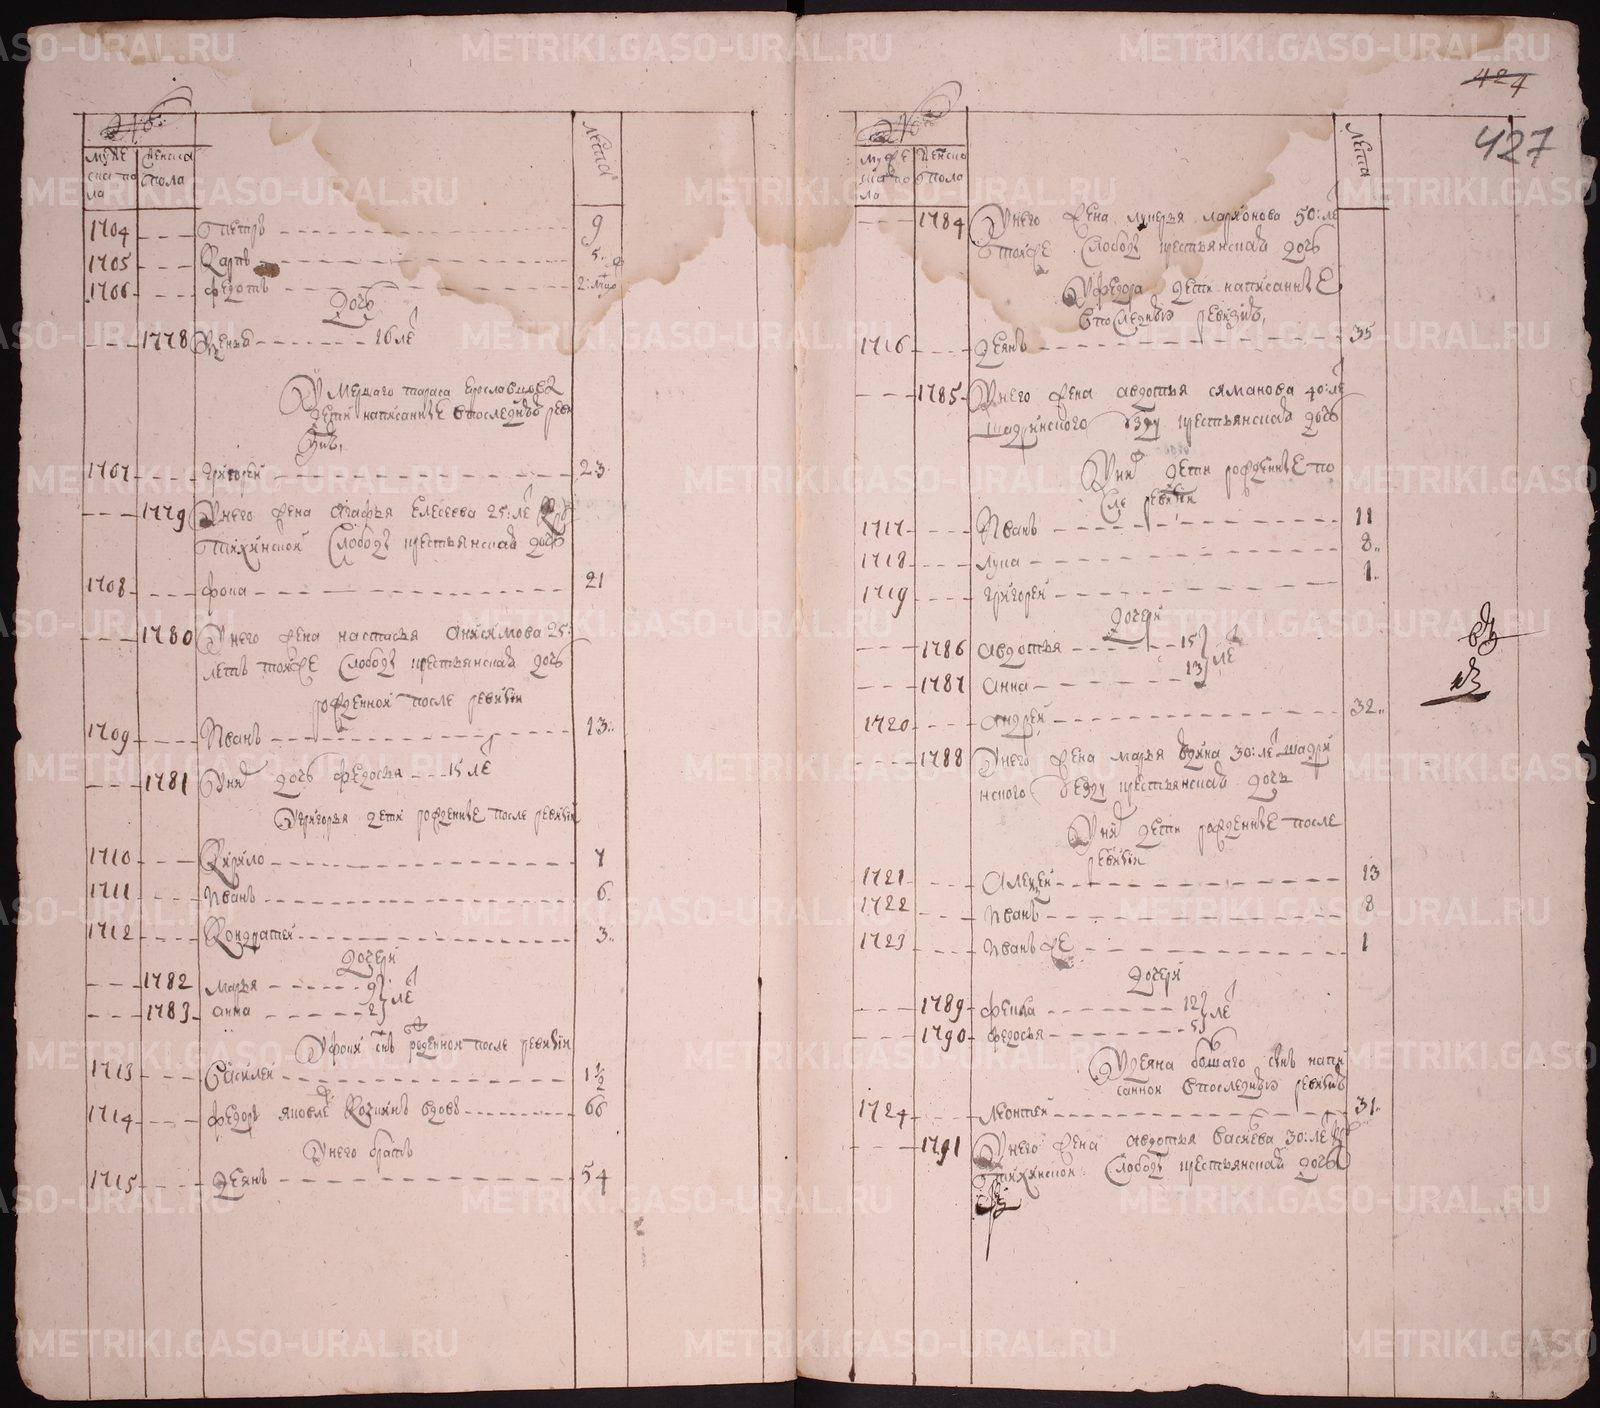 муже
ска по
ла
женска
пола
лета
1704 Петръ 9
1705 Карпъ 5
1706 Федотъ 2
дочь
1778 16 ле
Умершаго тараса
дети написанные впоследнъю реви
зию,
1707 Григорей 23
1779 Унего жена агафья Елесеева 25: ле
слободы крестьянская дочь
1708 фока 21
1780 Унего жена настасья анисимова 25:
летъ тояже слободы крестьянская дочь
рожденной после ревизии
1709 Иванъ 13
1781 Уних дочь федосья 15 ле
Угригорья дети рожденные после ревизии
1710 Кирило 7
1711 Иванъ 6
1712 Кондратей 3
дочери
1782 марья 9
1783 анна 2 ле
Уфоки снъ рожденной после ревизии
1713 Василей 1 1/2
1714 федоръ яковле вдовъ 66
Унего братъ
1715 Деянъ 54
424
427
муже
ска по
ла
женска
пола
лета
1784 Унего жена лукерья ларионова 50: ле
тояже слободы крестьянская дочь
Уфедора дети написанные
впоследнъю ревизию,
1716 Деянъ 35
1785 Унего жена авдотья сяманова 40: ле
шадринского уезду крестьянская дочь
Уних дети рожденные по
сле ревизии
1717 Иванъ 11
1718 лука 8
1719 григорей 1
дочери
1786 авдотья 15
1787 анна 13 ле
1720 андрей 32
1788 Унего жена марья 30: ле шадри
нского уезду крестьянская дочь
Уних дети рожденные после
ревизии
1721 Алексей 13
1722 Иванъ 8
1723 Иванъ же 1
дочери
1789 фекла 12
1790 федосья 5 ле
Удеяна большаго снъ напи
санной впоследнъю ревизию
1724 леонтей 31
1791 Унего жена авдотья 30: ле
слободы крестьянская дочь